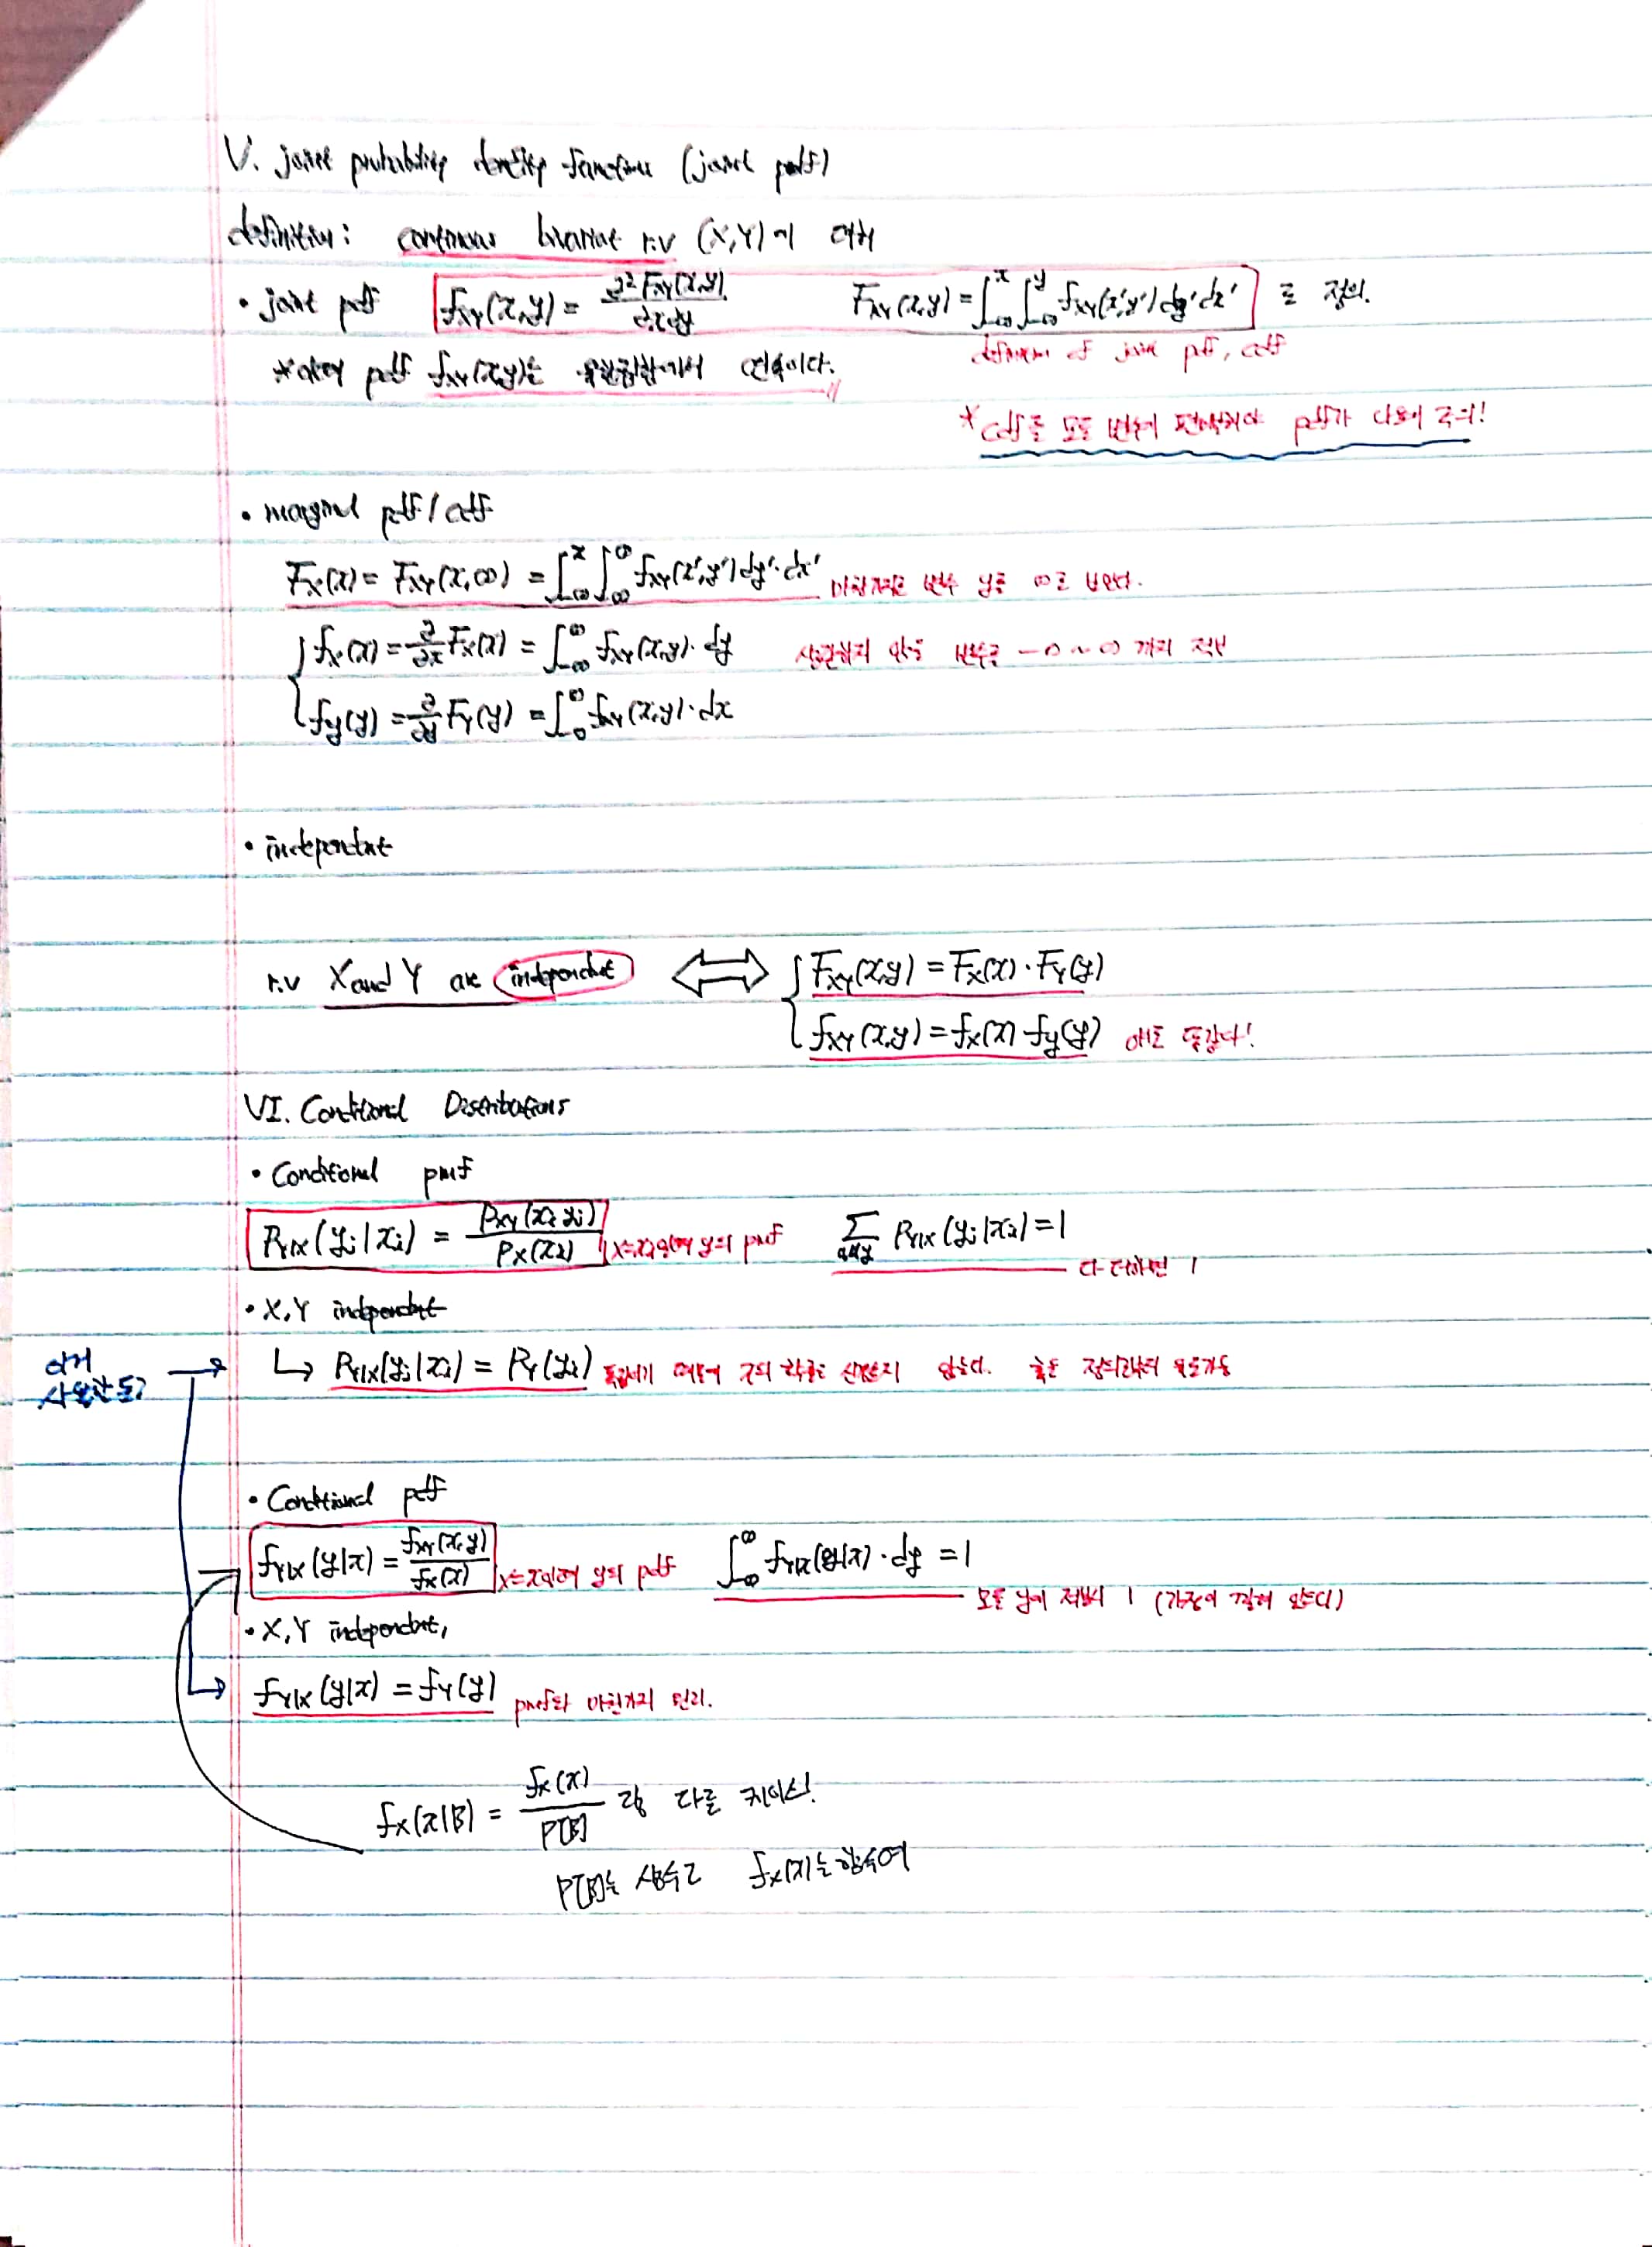 V. joint probability density function (joint pdf)
definition: continuous bivariate r.v (X,Y)에 대해
• joint pdf f_XY(x,y) = ∂²F_XY(x,y) / ∂x∂y F_XY(x,y) = ∫_-∞^x ∫_-∞^y f_XY(x',y') dy' dx' 로 정의.
definition of joint pdf, cdf
* pdf f_XY(x,y)는 연속이다.
* cdf를 모든 변수에 편미분해야 pdf가 나옴에 주의!
• marginal pdf / cdf
F_X(x) = F_XY(x,∞) = ∫_-∞^x ∫_-∞^∞ f_XY(x',y') dy'·dx' 마찬가지로 변수 y를 ∞로 보낸다.
f_X(x) = ∂/∂x F_X(x) = ∫_-∞^∞ f_XY(x,y)·dy 않는 변수를 -∞ ~ ∞ 까지 적분
f_y(y) = ∂/∂y F_Y(y) = ∫_-∞^∞ f_XY(x,y)·dx
• independent
r.v X and Y are independent ⇔ F_XY(x,y) = F_X(x)·F_Y(y)
f_XY(x,y) = f_X(x)·f_y(y) 얘도 똑같다!
VI. Conditional Distributions
• Conditional pmf
P_Y|X(y_j|x_i) = P_XY(x_i, y_j) / P_X(x_i) X=x_i일때 y의 pmf Σ_all y P_Y|X(y_j|x_i) = 1
다 더하면 1
• X,Y independent
이거 사용한 듯? ↳ P_Y|X(y_j|x_i) = P_Y(y_j) 독립이기 때문에 않는다. 혹은 정의로부터 유도가능
• Conditional pdf
f_Y|X(y|x) = f_XY(x,y) / f_X(x) X=x일때 y의 pdf ∫_-∞^∞ f_Y|X(y|x)·dy = 1
모든 y에 적분시 1
• X,Y independent,
f_Y|X(y|x) = f_Y(y) pmf와 마찬가지 원리.
f_X(x|B) = f_X(x) / P[B] 랑 다른 케이스!
P[B]는 상수고 f_X(x)는 함수여